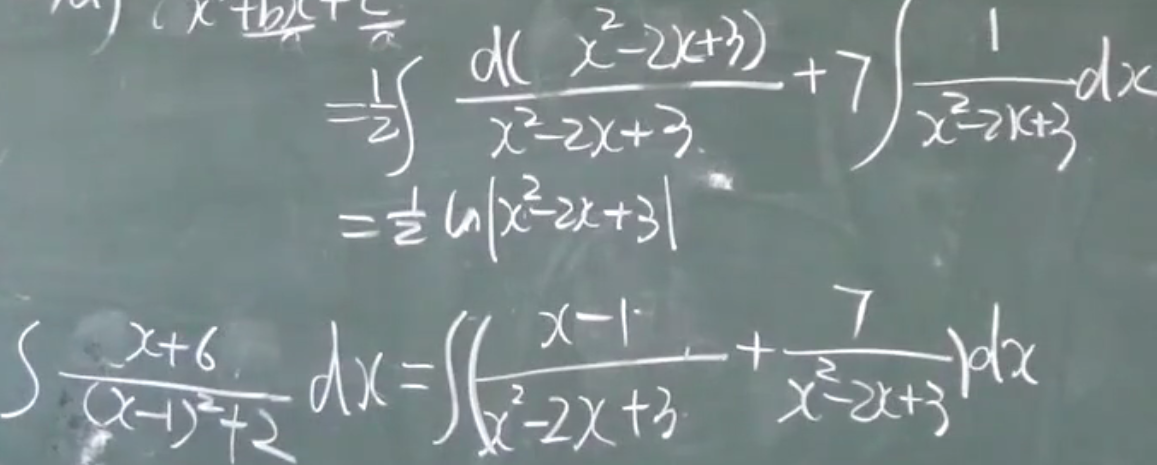 (x²+bx/a+c/a
=½∫ d(x²-2x+3)/(x²-2x+3) + 7∫ 1/(x²-2x+3) dx
=½ ln|x²-2x+3|
∫ (x+6)/((x-1)²+2) dx = ∫( (x-1)/(x²-2x+3) + 7/(x²-2x+3) )dx